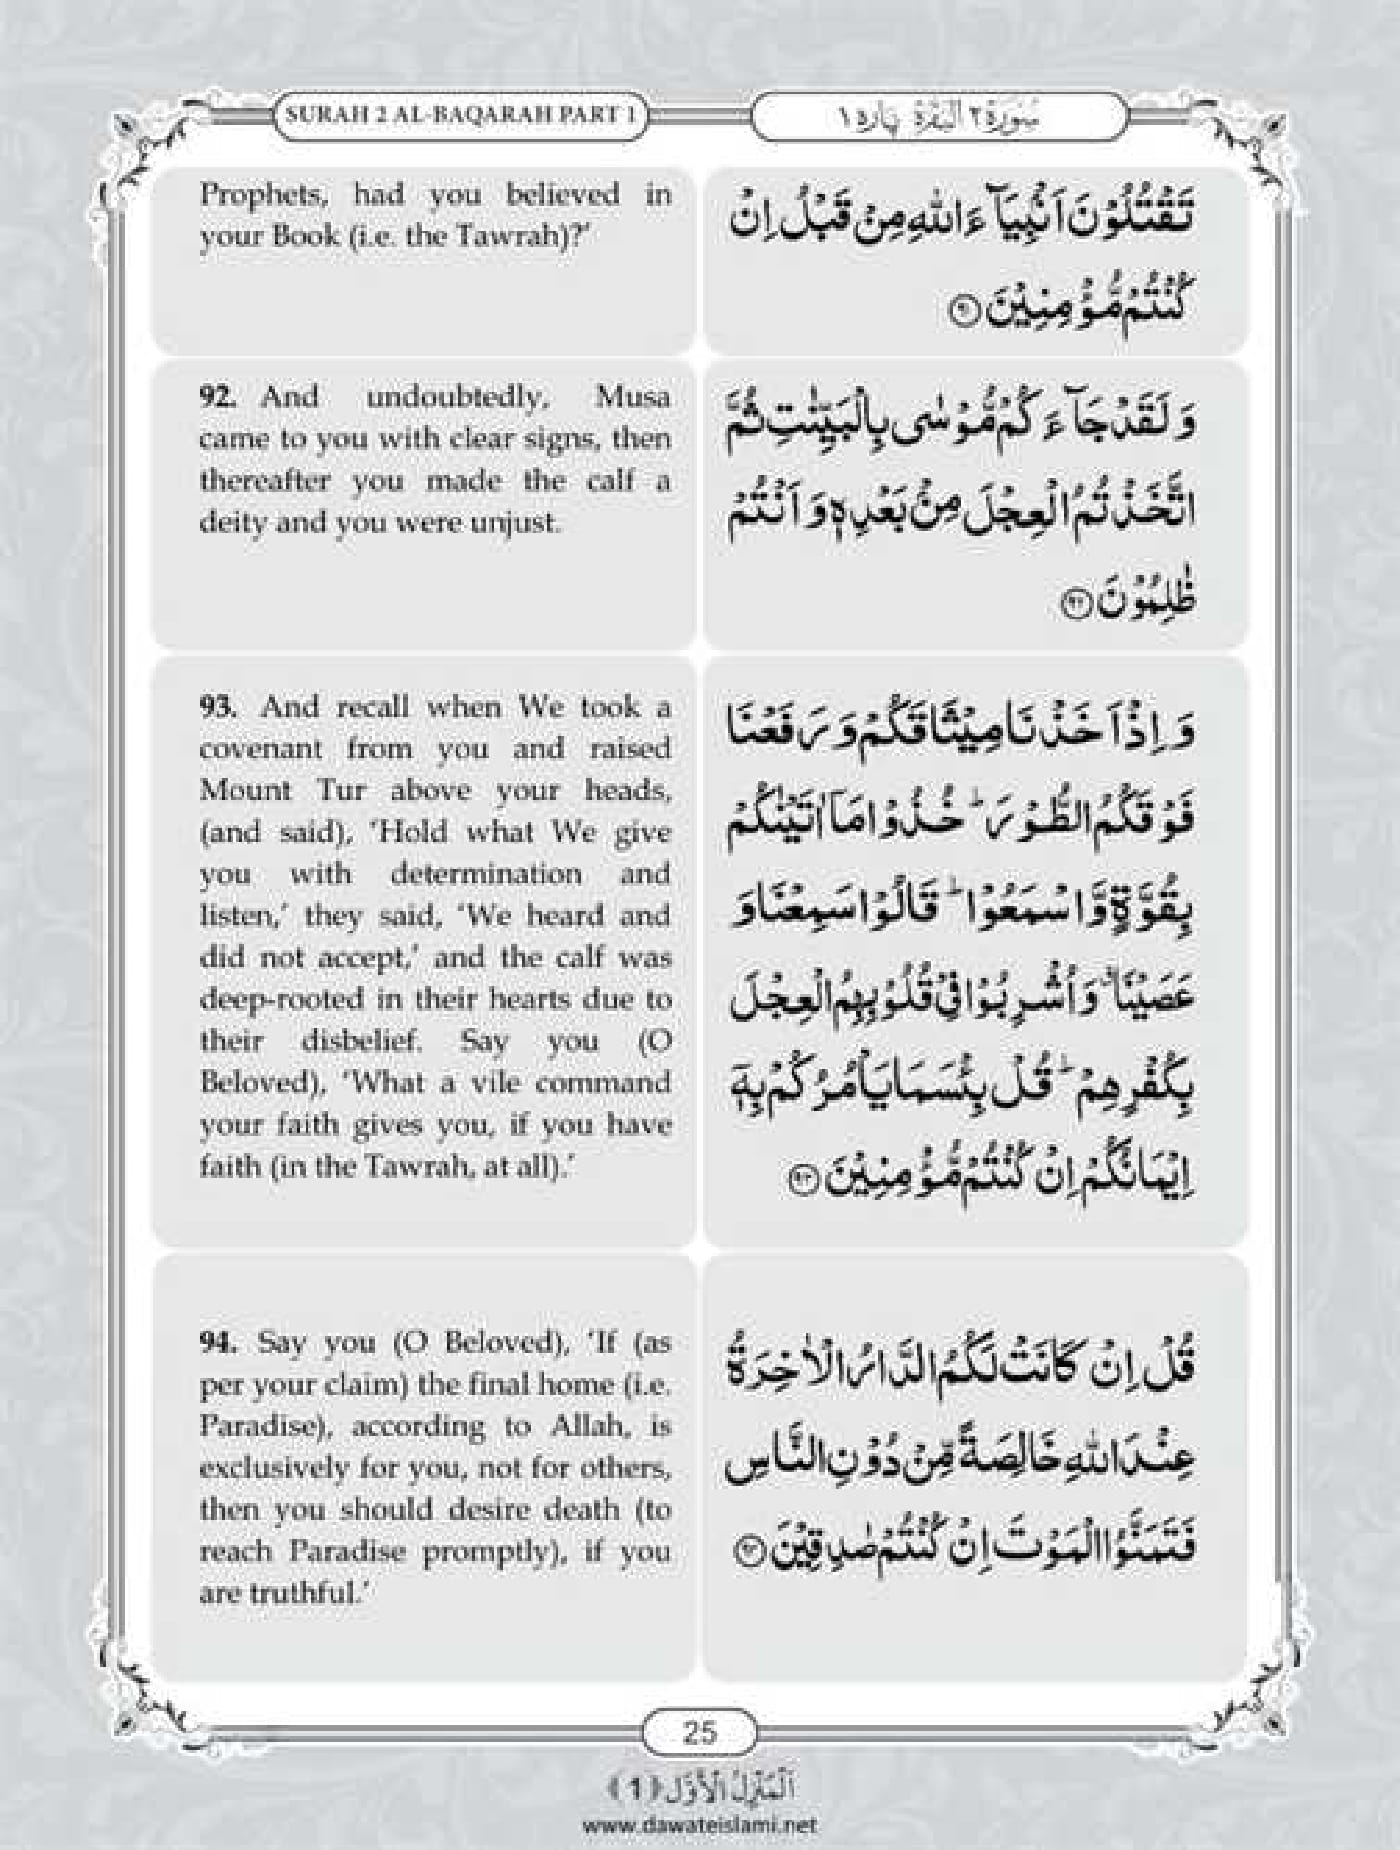 SURAH 2 AL-BAQARAH PART 1
سُوْرَۃ ٢ اَلْبَقَرَة پاره ١
Prophets, had you believed in
your Book (i.e. the Tawrah)?’
تَقْتُلُوْنَ اَنْۢبِیَآءَ اللّٰهِ مِنْ قَبْلُ اِنْ
كُنْتُمْ مُّؤْمِنِیْنَ
92. And undoubtedly, Musa
came to you with clear signs, then
thereafter you made the calf a
deity and you were unjust.
وَ لَقَدْ جَآءَكُمْ مُّوْسٰى بِالْبَیِّنٰتِ ثُمَّ
اتَّخَذْتُمُ الْعِجْلَ مِنْۢ بَعْدِهٖ وَ اَنْتُمْ
ظٰلِمُوْنَ ﴿٩٢﴾
93. And recall when We took a
covenant from you and raised
Mount Tur above your heads,
(and said), ‘Hold what We give
you with determination and
listen,’ they said, ‘We heard and
did not accept,’ and the calf was
deep-rooted in their hearts due to
their disbelief. Say you (O
Beloved), ‘What a vile command
your faith gives you, if you have
faith (in the Tawrah, at all).’
وَ اِذْ اَخَذْنَا مِیْثَاقَكُمْ وَ رَفَعْنَا
فَوْقَكُمُ الطُّوْرَ ؕ خُذُوْا مَاۤ اٰتَیْنٰكُمْ
بِقُوَّةٍ وَّ اسْمَعُوْا ؕ قَالُوْا سَمِعْنَا وَ
عَصَیْنَا ۗ وَ اُشْرِبُوْا فِیْ قُلُوْبِهِمُ الْعِجْلَ
بِكُفْرِهِمْ ؕ قُلْ بِئْسَمَا یَاْمُرُكُمْ بِهٖۤ
اِیْمَانُكُمْ اِنْ كُنْتُمْ مُّؤْمِنِیْنَ ﴿٩٣﴾
94. Say you (O Beloved), ‘If (as
per your claim) the final home (i.e.
Paradise), according to Allah, is
exclusively for you, not for others,
then you should desire death (to
reach Paradise promptly), if you
are truthful.’
قُلْ اِنْ كَانَتْ لَكُمُ الدَّارُ الْاٰخِرَةُ
عِنْدَ اللّٰهِ خَالِصَةً مِّنْ دُوْنِ النَّاسِ
فَتَمَنَّوُا الْمَوْتَ اِنْ كُنْتُمْ صٰدِقِیْنَ ﴿٩٤﴾
25
اَلْمَنْزِلُ الْاَوَّل ﴿1﴾
www.dawateislami.net